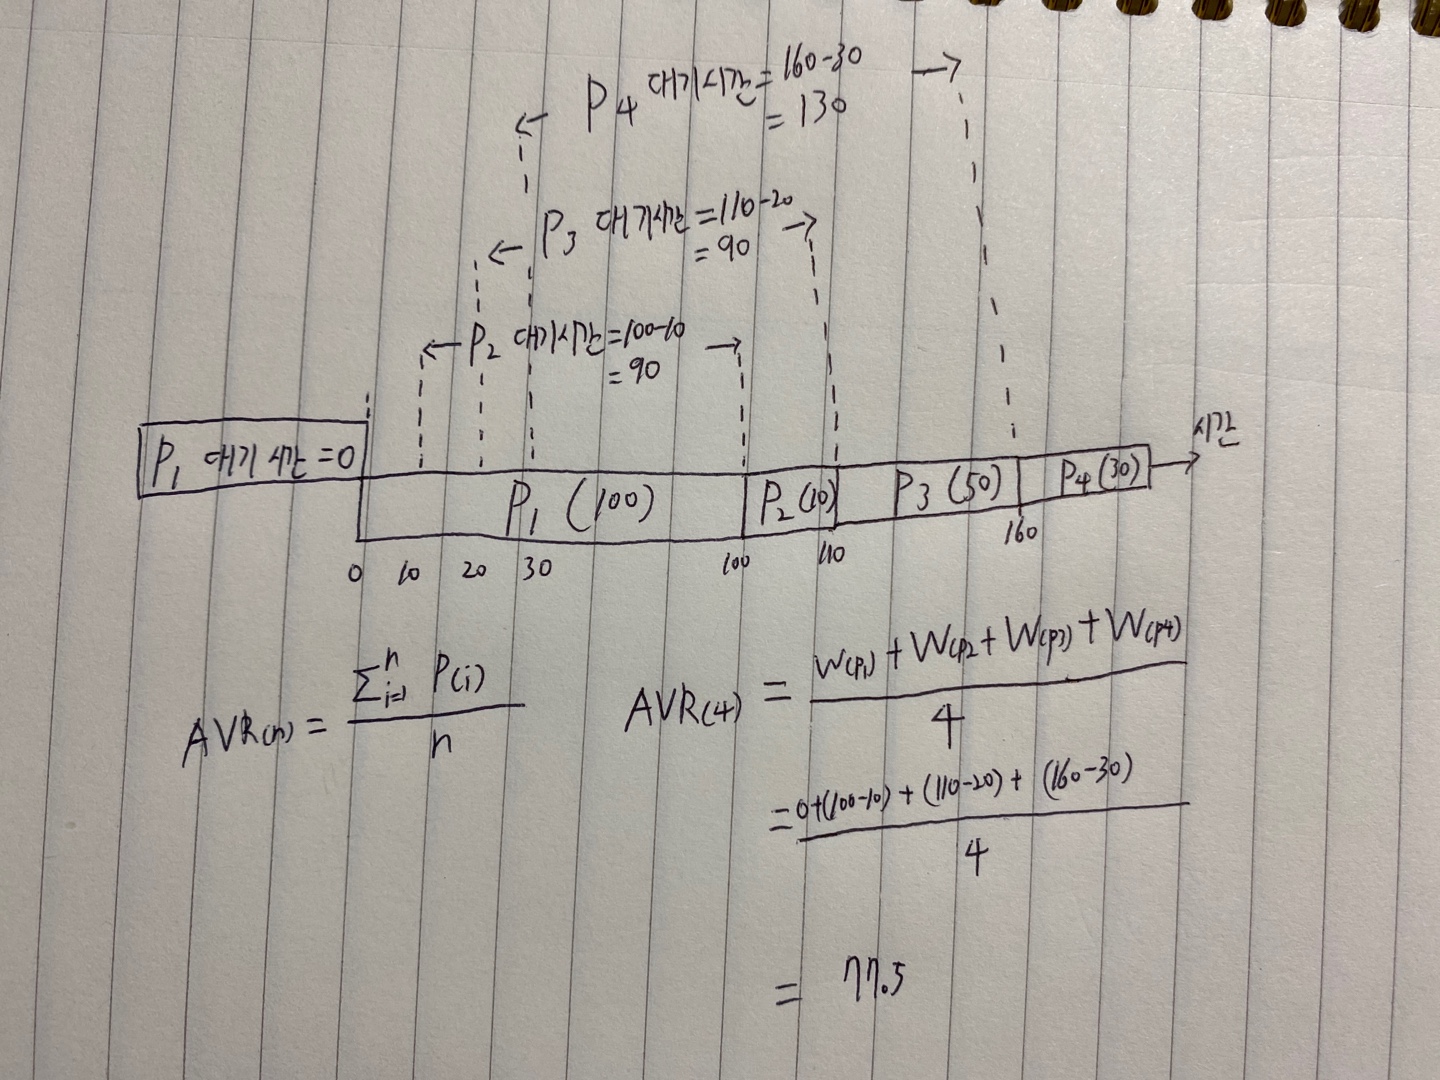 P4 대기시간 = 160-30
= 130
P3 대기시간 = 110-20
= 90
P2 대기시간 = 100-10
= 90
P1 대기 시간 = 0
시간
P1 (100)
P2 (10)
P3 (50)
P4 (30)
0 10 20 30 100 110 160
AVR(n) = Σ_{i=1}^{n} P(i) / n
AVR(4) = W(P1) + W(P2 + W(P3) + W(P4) / 4
= 0+(100-10) + (110-20) + (160-30) / 4
= 77.5